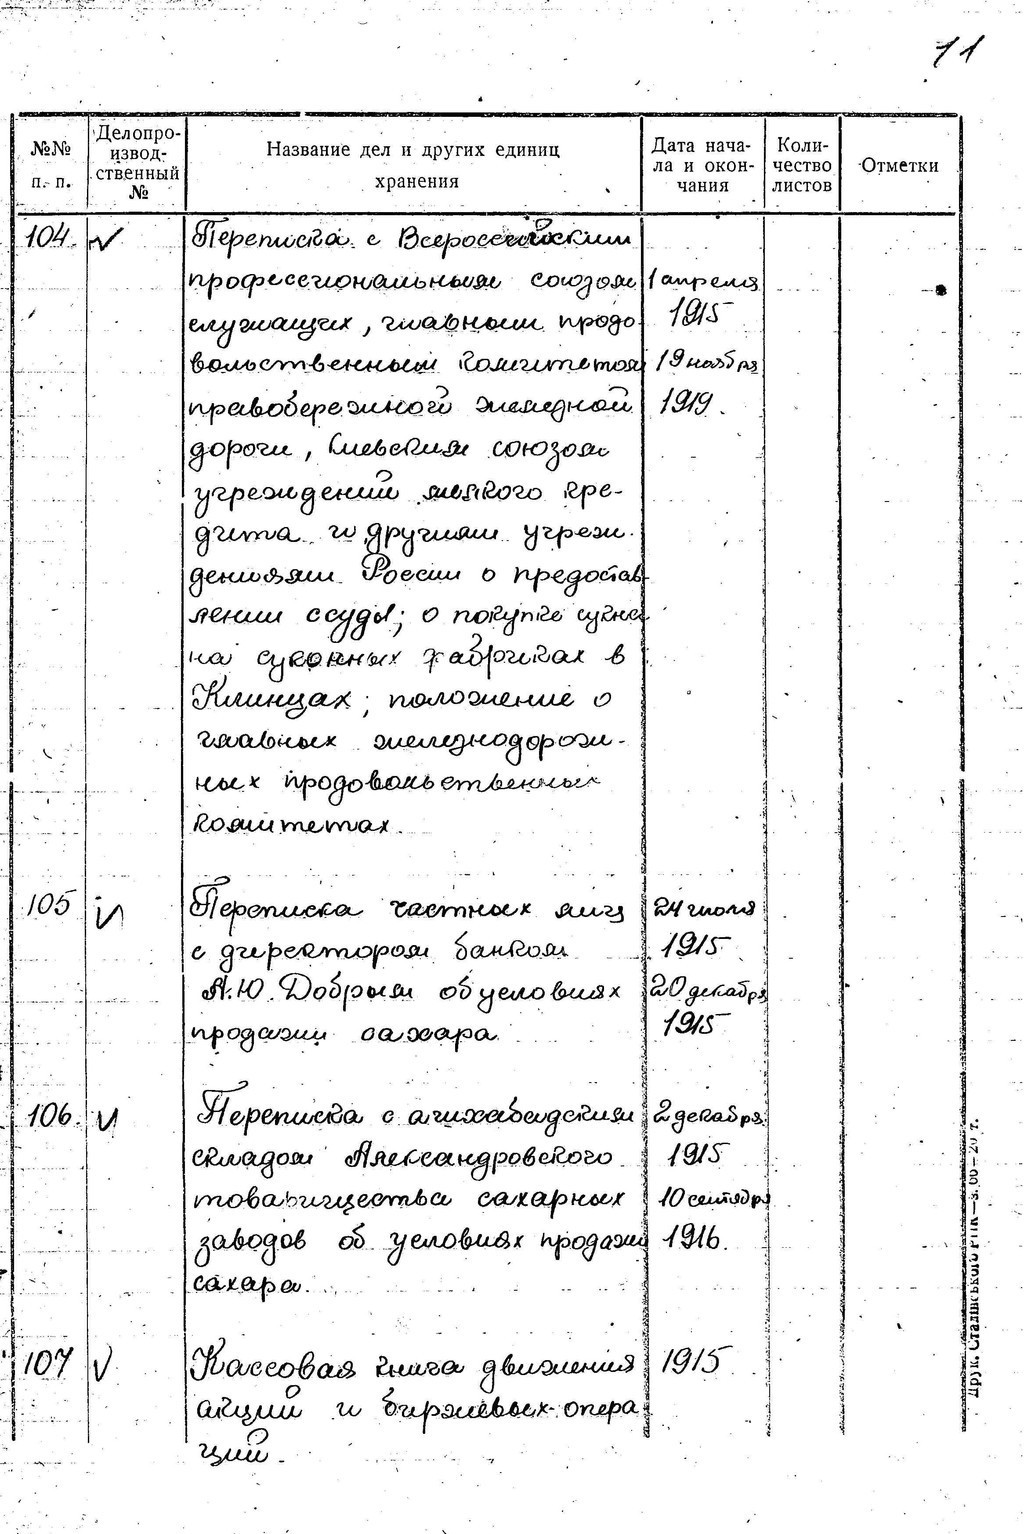 11
№№ п.-п.
Делопро-
извод-
ственный
№
Название дел и других единиц
хранения
Дата нача-
ла и окон-
чания
Коли-
чество
листов
Отметки
104. Переписка с Всероссийским
профессиональным союзом 1 апреля
служащих, главным продо 1915
вольственным комитетом 19 ноября
правобережной железной 1919.
дороги, Киевским союзом
учреждений мелкого кре-
дита и другими учреж-
дениями России о предостав-
лении ссуды; о покупке сукна
на суконных фабриках в
Клинцах; положение о
главных железнодорож-
ных продовольственных
комитетах.
105 Переписка частных лиц 24 июля
с директором банком 1915
А.Ю. Добрым об условиях 20 декабря
продажи сахара 1915
106. Переписка с ашхабадским 2 декабря
складом Александровского 1915
товарищества сахарных 10 сентября
заводов об условиях продажи 1916.
сахара.
107 Кассовая книга движения 1915
акций и биржевых опера
ций.
Друк. Сталінського